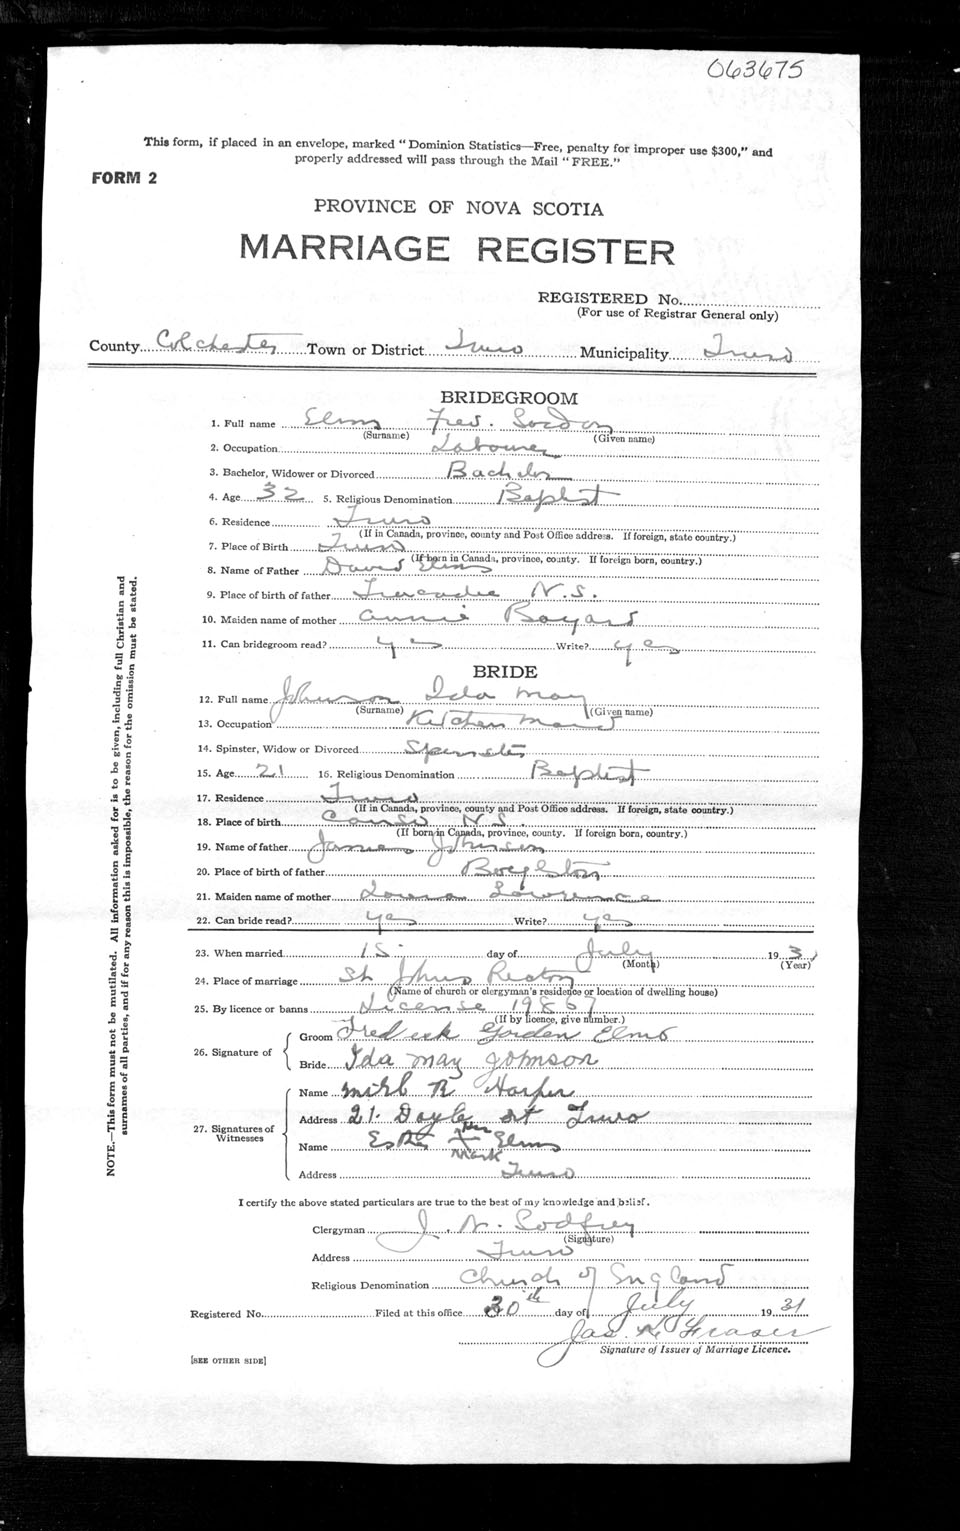 063675
This form, if placed in an envelope, marked "Dominion Statistics—Free, penalty for improper use $300," and
properly addressed will pass through the Mail "FREE."
FORM 2
PROVINCE OF NOVA SCOTIA
MARRIAGE REGISTER
REGISTERED No.
(For use of Registrar General only)
County Colchester Town or District Truro Municipality Truro
BRIDEGROOM
1. Full name Elms Fred. Gordon
(Surname) (Given name)
2. Occupation Labourer
3. Bachelor, Widower or Divorced Bachelor
4. Age 32 5. Religious Denomination Baptist
6. Residence Truro
(If in Canada, province, county and Post Office address. If foreign, state country.)
7. Place of Birth Truro
(If born in Canada, province, county. If foreign born, country.)
8. Name of Father David Elms
9. Place of birth of father Tracadie N.S.
10. Maiden name of mother Annie Bayard
11. Can bridegroom read? yes Write? yes
BRIDE
12. Full name Johnson Ida May
(Surname) (Given name)
13. Occupation Kitchen Maid
14. Spinster, Widow or Divorced Spinster
15. Age 21 16. Religious Denomination Baptist
17. Residence Truro
(If in Canada, province, county and Post Office address. If foreign, state country.)
18. Place of birth Canso N.S.
(If born in Canada, province, county. If foreign born, country.)
19. Name of father James Johnson
20. Place of birth of father Boylston
21. Maiden name of mother Lawrence
22. Can bride read? yes Write? yes
23. When married 15 day of July 1931
(Month) (Year)
24. Place of marriage St Johns Rectory
(Name of church or clergyman's residence or location of dwelling house)
25. By licence or banns License 19867
(If by licence, give number.)
26. Signature of
Groom Fredrick Gorden Elms
Bride Ida may Johnson
27. Signatures of Witnesses
Name R Harper
Address 21. Doyle st Truro
Name Esther X her Elms
mark
Address Truro
I certify the above stated particulars are true to the best of my knowledge and belief.
Clergyman J. N. Godfrey
(Signature)
Address Truro
Religious Denomination Church of England
Registered No. Filed at this office 30th day of July 1931
Jas. K Fraser
Signature of Issuer of Marriage Licence.
[SEE OTHER SIDE]
NOTE.—This form must not be mutilated. All information asked for is to be given, including full Christian and
surnames of all parties, and if for any reason this is impossible, the reason for the omission must be stated.